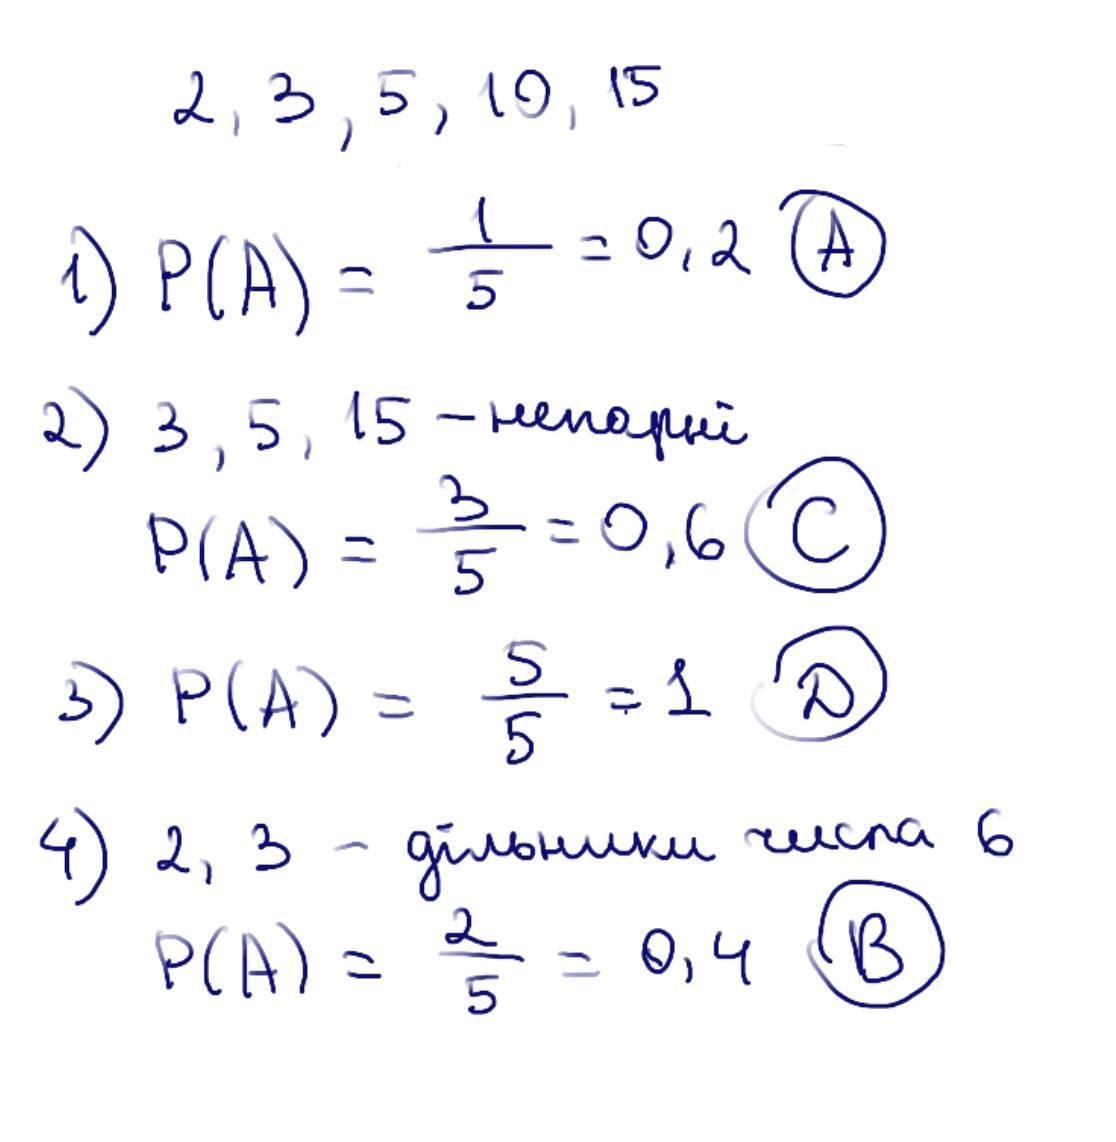 2, 3, 5, 10, 15
1) P(A) = 1/5 = 0,2 A
2) 3, 5, 15 – непарні
P(A) = 3/5 = 0,6 C
3) P(A) = 5/5 = 1 D
4) 2, 3 – дільники числа 6
P(A) = 2/5 = 0,4 B